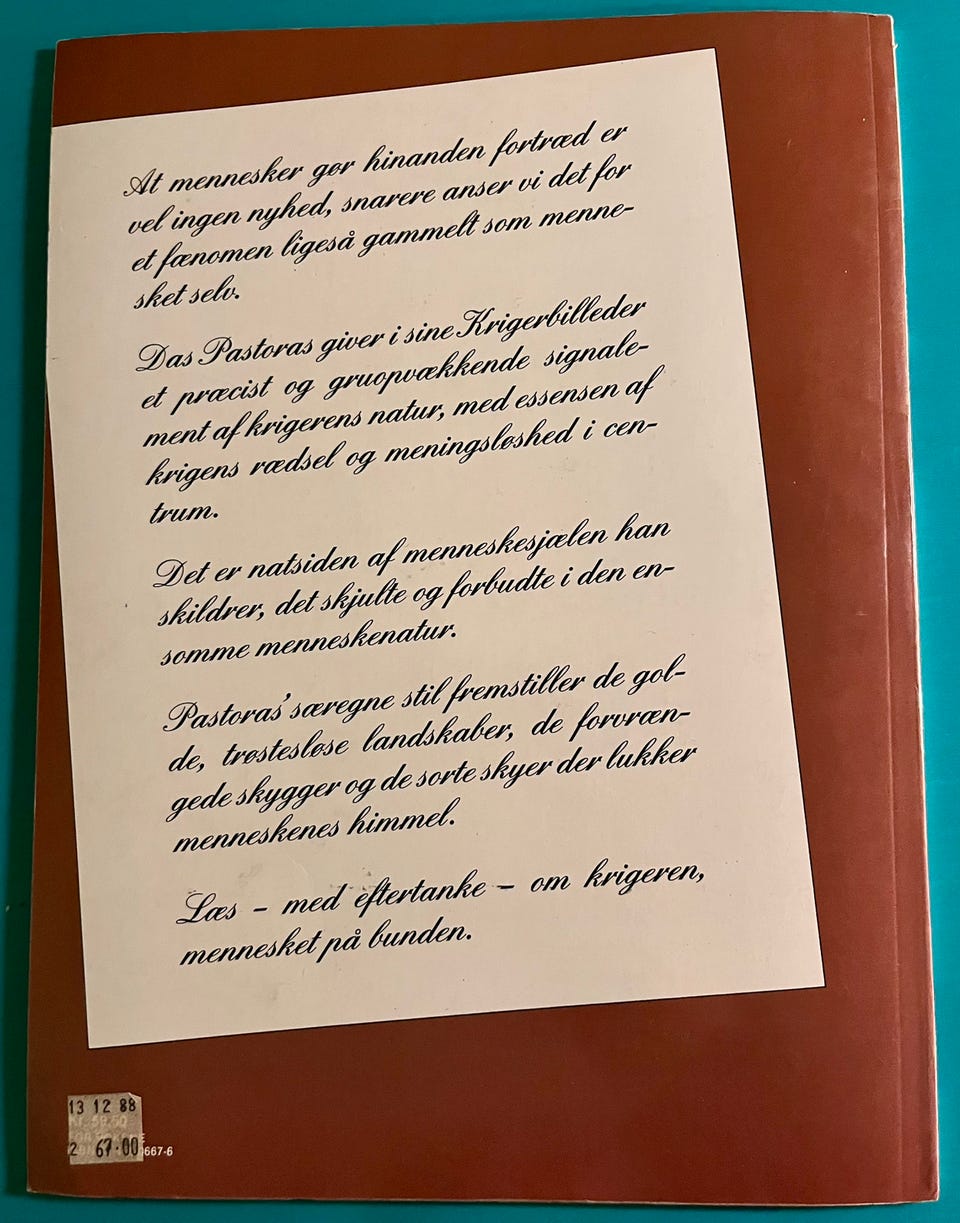 At mennesker gør hinanden fortræd er
vel ingen nyhed, snarere anser vi det for
et fænomen ligeså gammelt som menne-
sket selv.
Das Pastoras giver i sine Krigerbilleder
et præcist og gruopvækkende signale-
ment af krigerens natur, med essensen af
krigens rædsel og meningsløshed i cen-
trum.
Det er natsiden af menneskesjælen han
skildrer, det skjulte og forbudte i den en-
somme menneskenatur.
Pastoras' særegne stil fremstiller de gol-
de, trøstesløse landskaber, de forvræn-
gede skygger og de sorte skyer der lukker
menneskenes himmel.
Læs – med eftertanke – om krigeren,
mennesket på bunden.
13 12 88
2 67.00
667-6